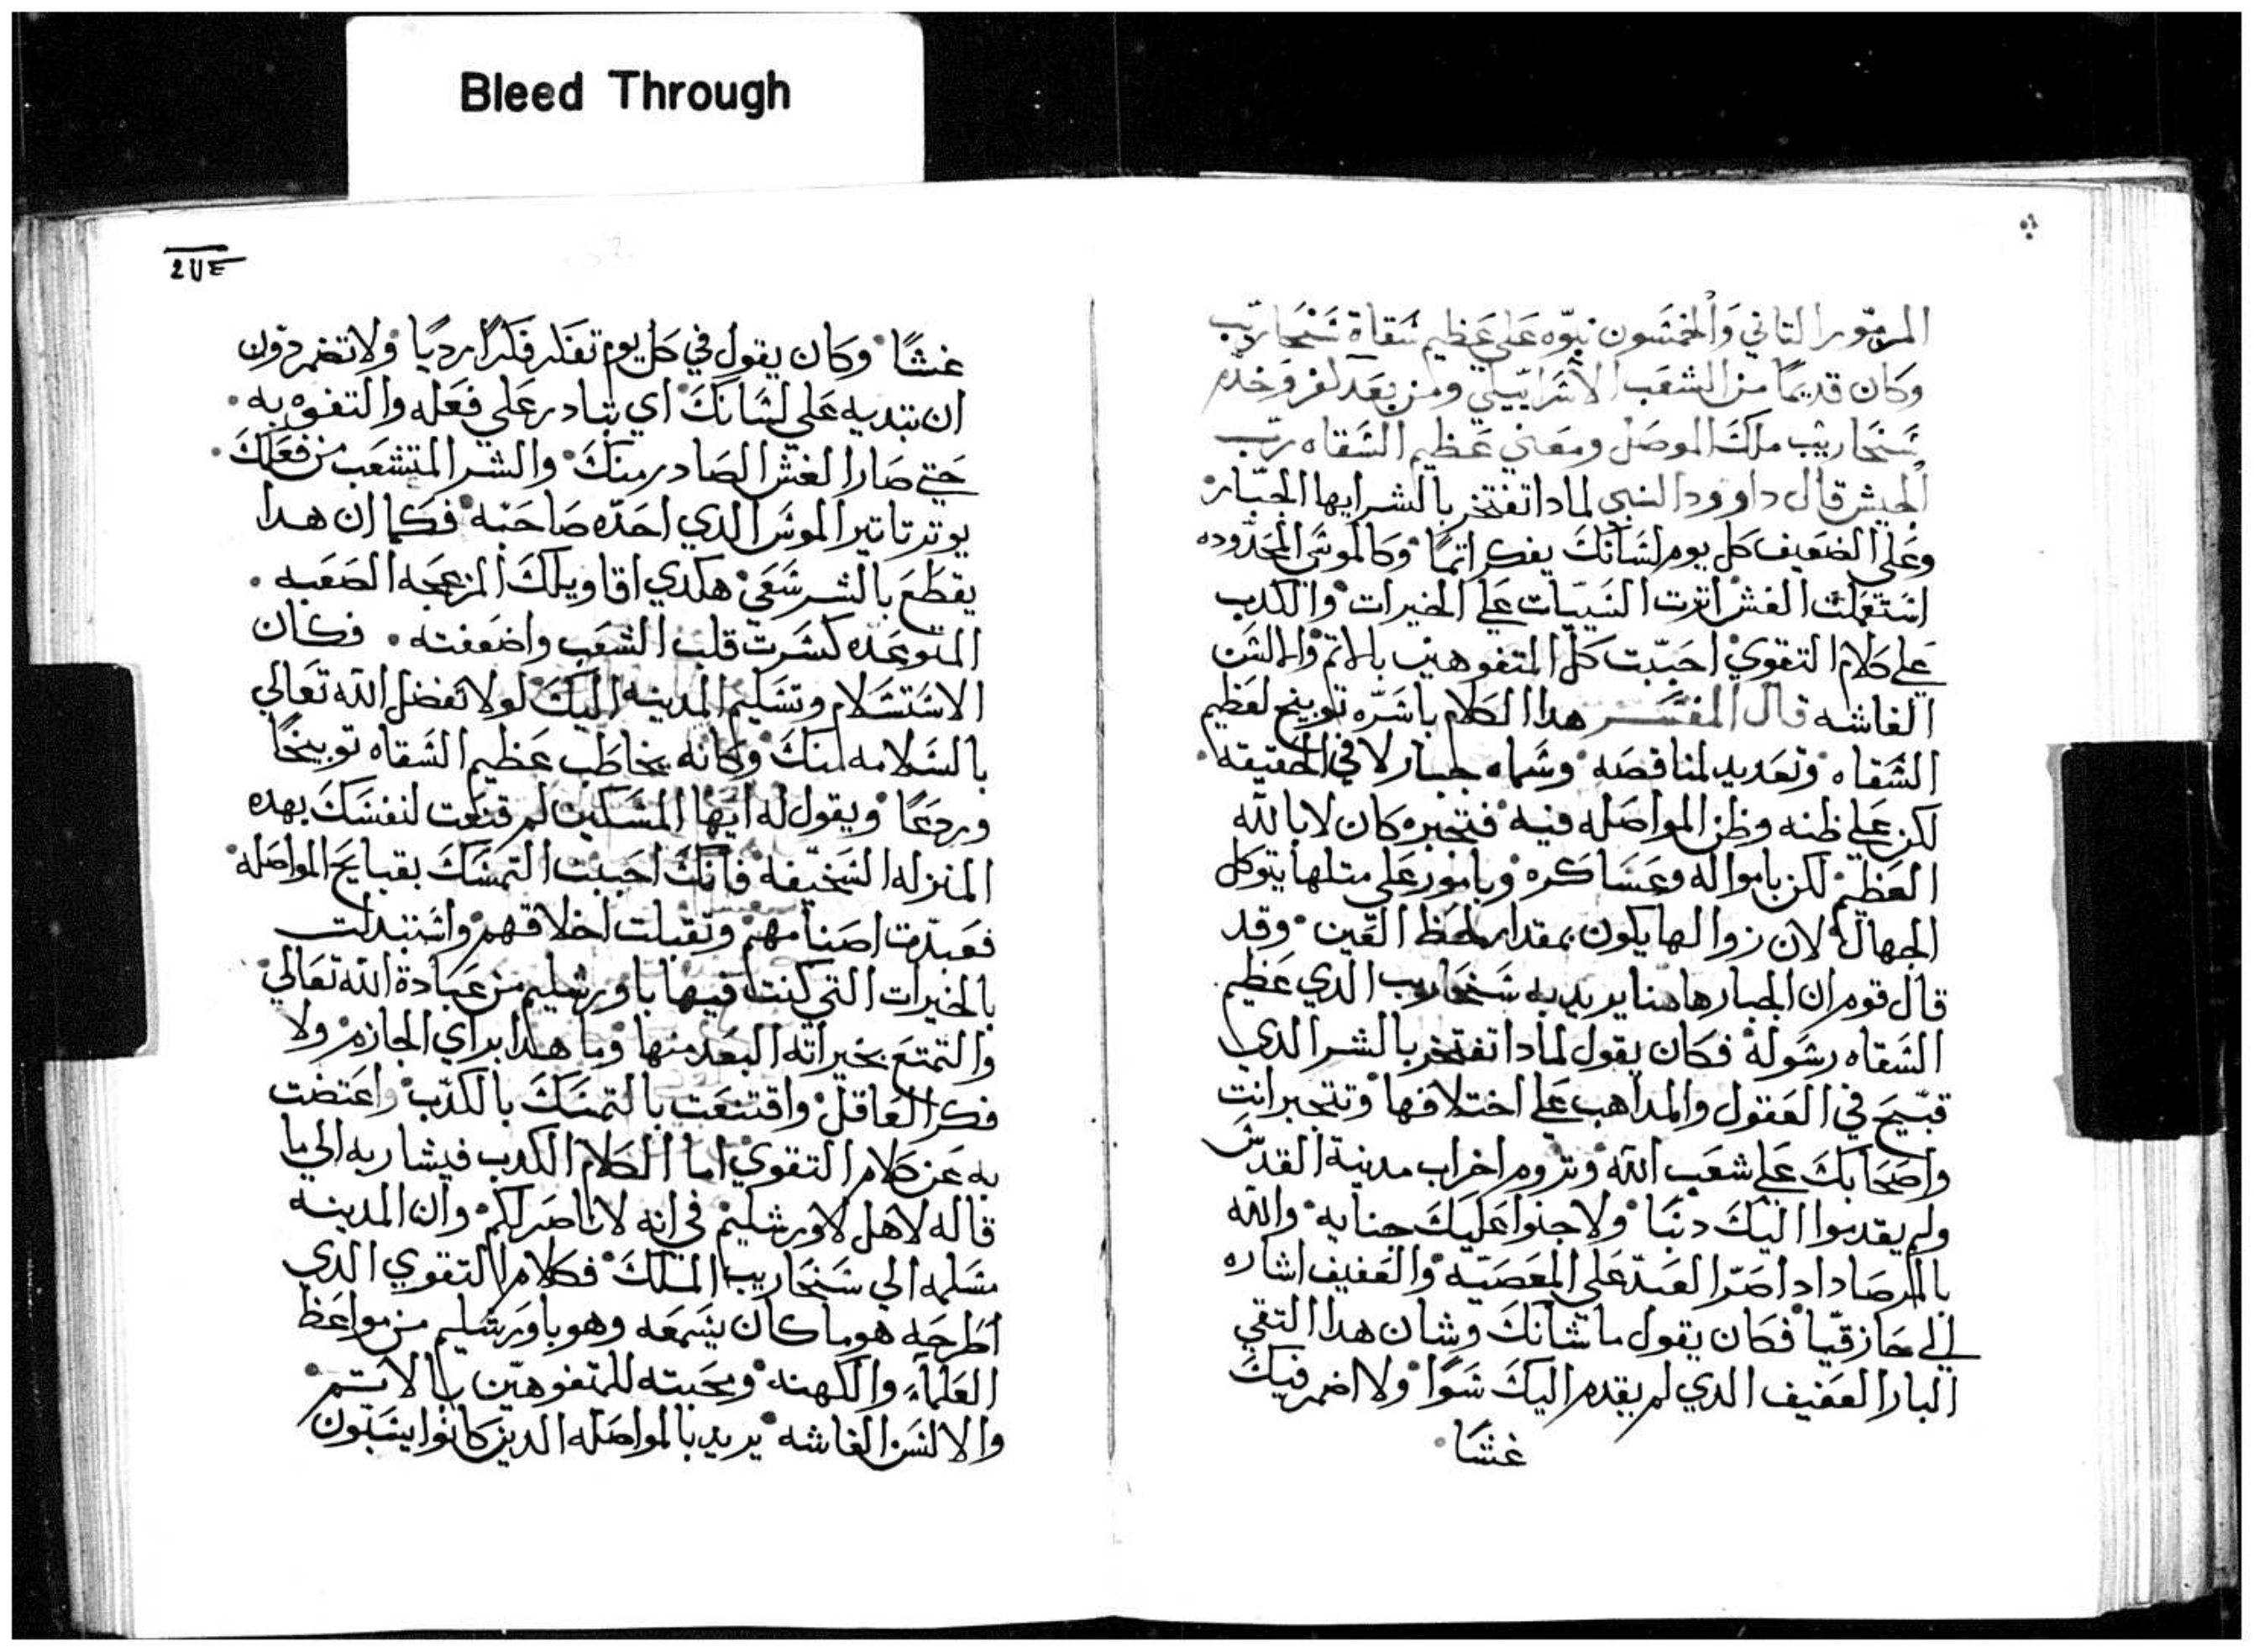 Bleed Through
المزمور التاني والخمسون نبوه علي عظيم سقاة سنحاريب
وكان قديمًا من الشعب الاسراييلي ومن بعد كفر وخدم
سنحاريب ملك الموصل ومعني عظيم السقاه رتب
الجيش قال داوود النبي لمادا تفتخر بالشر ايها الجبار
وعلي الضعيف كل يوم لسانك يفكر اتمًا وكالموسي المحدوده
استعملت الغش اترت السييات علي الخيرات والكدب
علي كلام التقوي احببت كل المتفوهين بالاتم والالسن
الغاشه قال المفسر هدا الكلام باسره توبيخ لعظيم
السقاه وتعديد لمناقصه وسماه جبار لا في الحقيقه
لكن علي ظنه وظن المواصله فيه فتجبره كان لا بالله
العظيم لكن بامواله وعساكره وبامور علي متلها يتوكل
الجهال لان زوالها يكون بمقدار لحظ العين وقد
قال قوم ان الجبار هاهنا يريد به سنحاريب الدي عظيم
السقاه رسوله فكان يقول لمادا تفتخر بالشر الدي
قبيح في العقول والمداهب علي اختلافها وتتجبر انت
واصحابك علي شعب الله وتروم اخراب مدينة القدس
ولم يقدموا اليك دنبًا ولا جنوا عليك جنايه والله
بالمرصاد ادا اصر العبد علي المعصيه والعفيف اشاره
الي حازقيا فكان يقول ما شانك وشان هدا التقي
البار العفيف الدي لم يقدم اليك سوًا ولا اضمر فيك
غشًا
غشًا وكان يقول في كل يوم تفكر فكرًا رديًا ولا تضمر دون
ان تبديه علي لسانك اي تبادر علي فعله والتفوه به
حتي صار الغش الصادر منك والشر المتشعب من فعلك
يوتر تاتير الموس الدي احده صاحبه فكما ان هدا
يقطع بالشر سعي هكدي اقاويلك المزعجه الصعبه
المتوعده كسرت قلب الشعب واضعفته فكان
الاستسلام وتسليم المدينه اليك لولا تفضل الله تعالي
بالسلامه منك وكانه يخاطب عظيم السقاه توبيخًا
وردعًا ويقول له ايها المسكين لم قنعت لنفسك بهده
المنزله السخيفه فانك احببت التمسك بقبايح المواصله
فعبدت اصنامهم وتقبلت اخلاقهم واستبدلت
بالخيرات التي كنت فيها باورشليم من عبادة الله تعالي
والتمتع بخيراته البعد منها وما هدا براي الحازم ولا
فكر العاقل واقتنعت بالتمسك بالكدب واعتضت
به عن كلام التقوي اما الكلام الكدب فيشار به الي ما
قاله لاهل لاورشليم في انه لا ناصر لكم وان المدينه
مسلمه الي سنحاريب الملك فكلام التقوي الدي
اطرحه هو ما كان يسمعه وهو باورشليم من مواعظ
العلماء والكهنه ومحبته للمتفوهين بالاتم
والالسن الغاشه يريد بالمواصله الدين كانوا يسبون